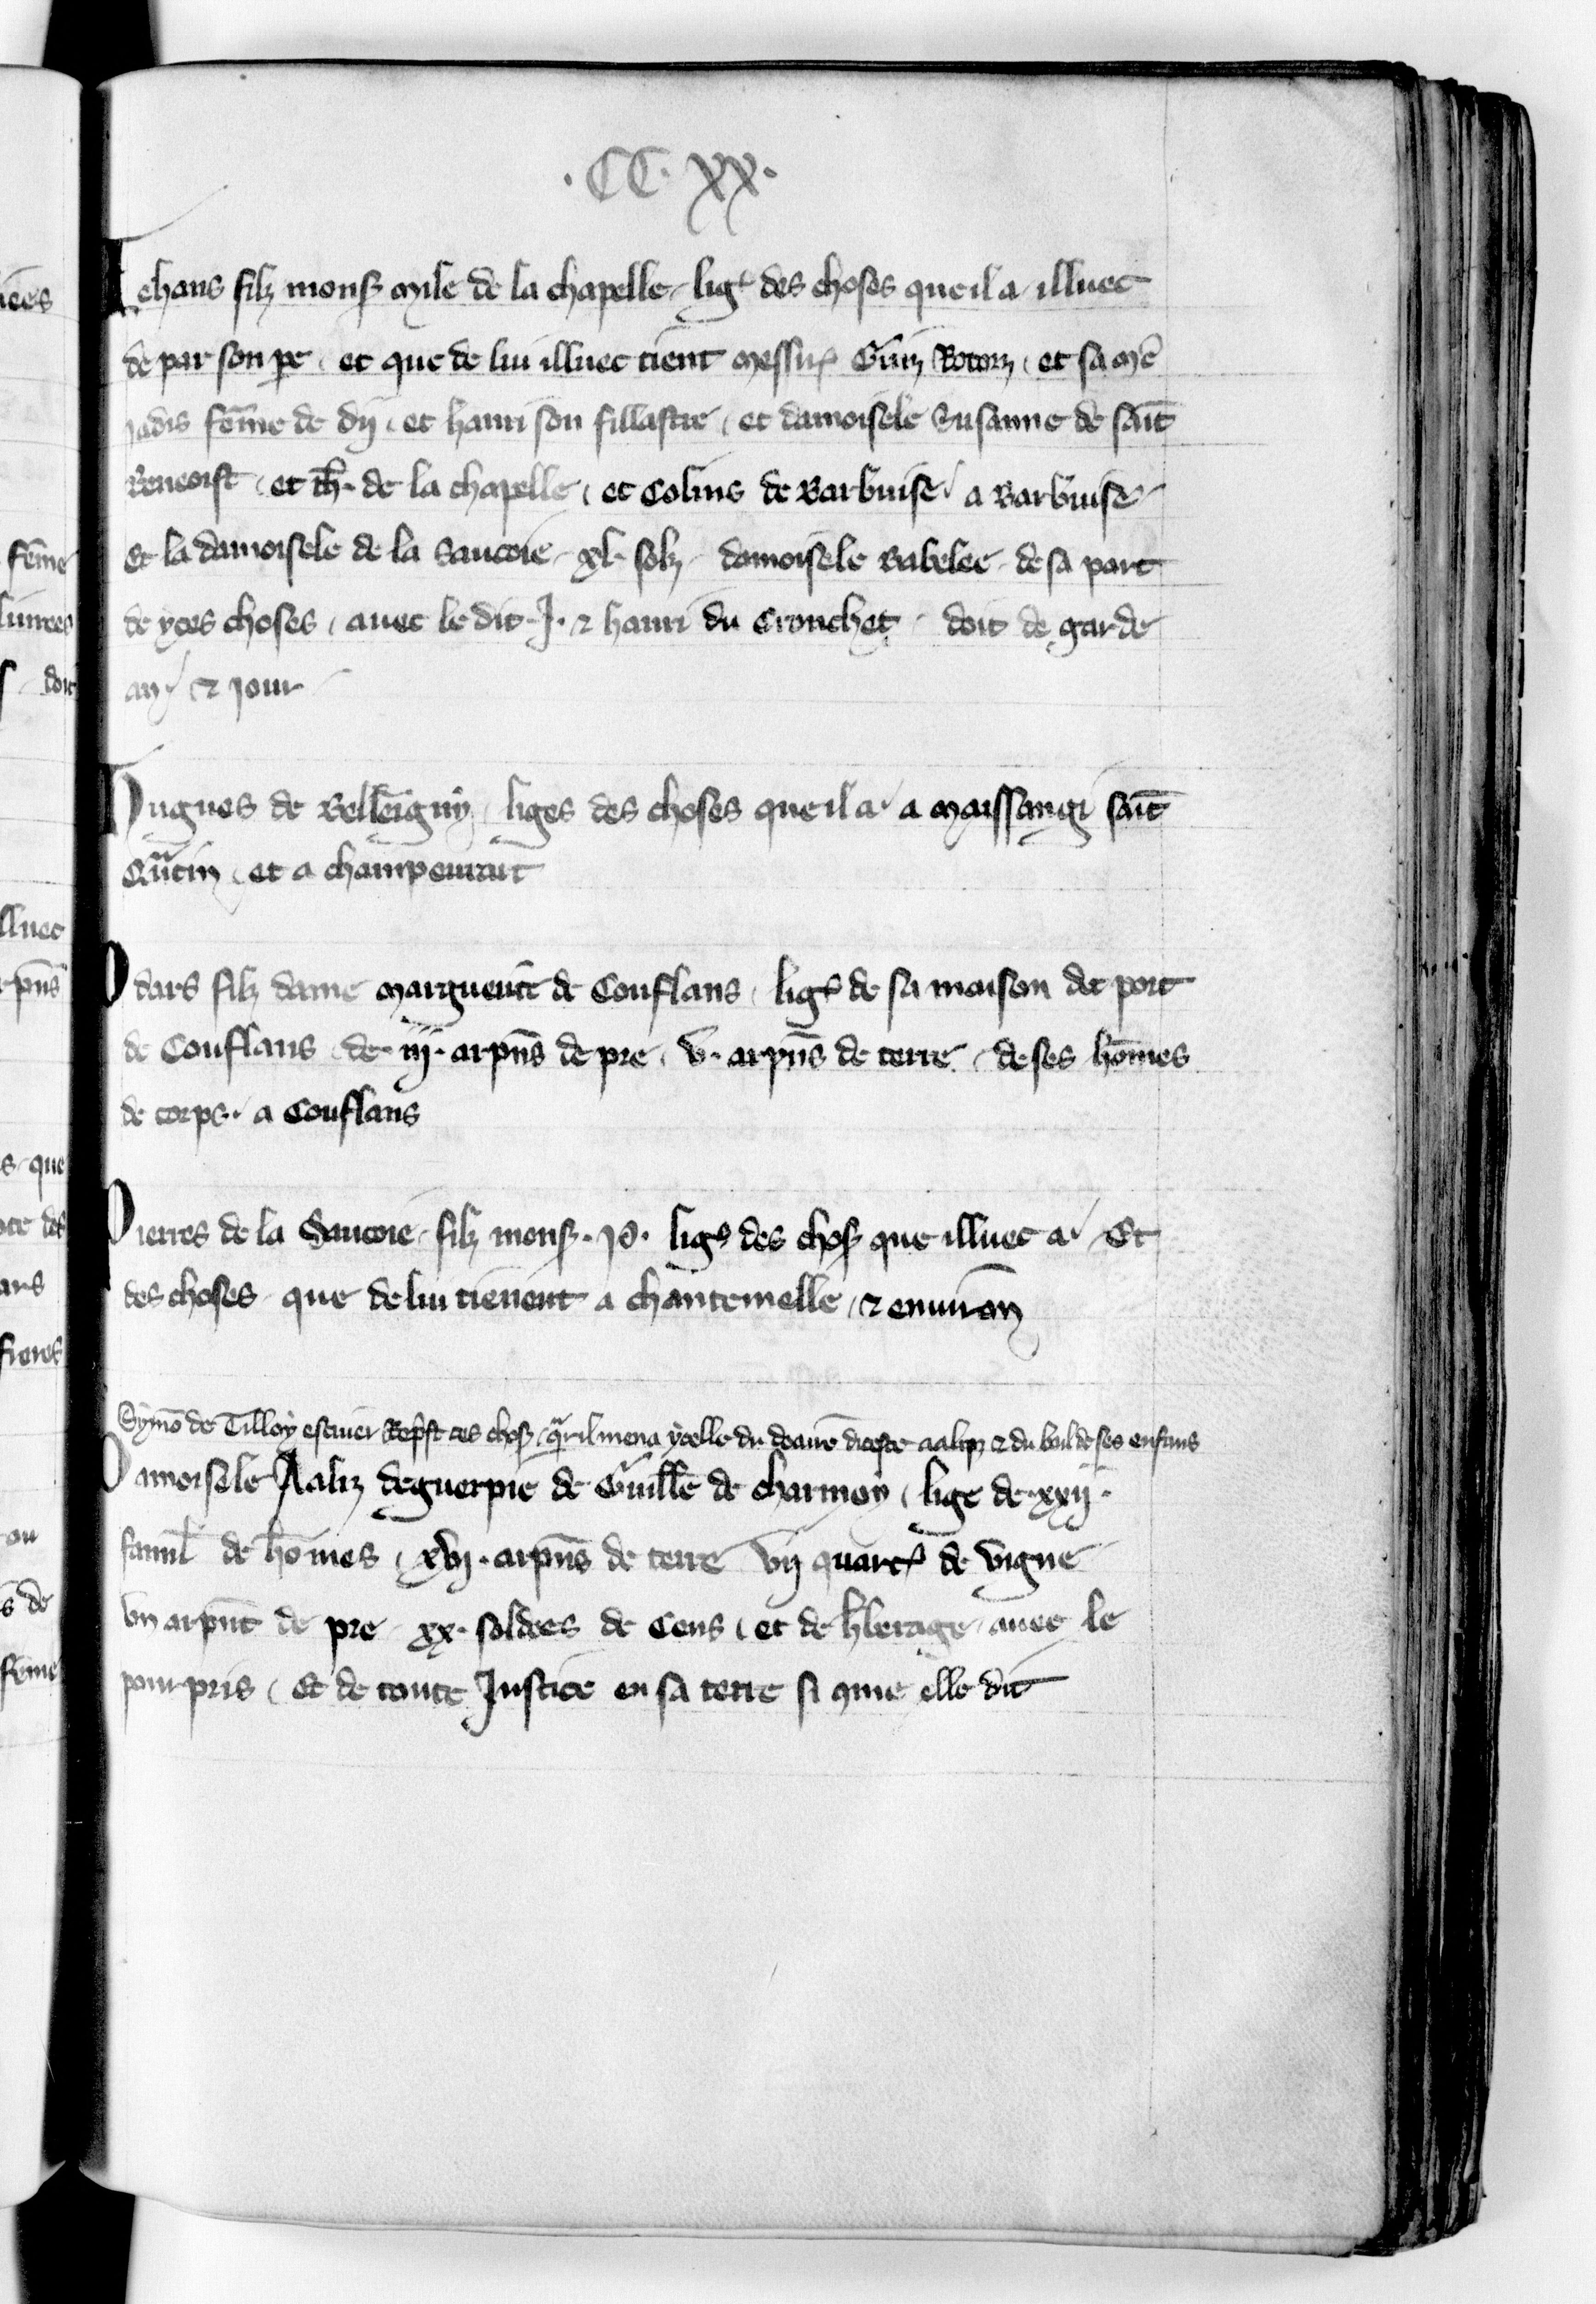 .CC.XX.
Jehans filz mons mile de la chapelle, lig des choses que il a illuec
de par son pe, et que de lui illuec tient messir Guin Rotorz, et sa mē
jadis fēme de dij, et hanri son fillastre, et damoisele Susanne de saīt
Beneoist, et th. de la chapelle, et Colins de Barbuise a Barbuise
Et la damoisele de la Saucoie, xl. solz, damoisele Babelee, de sa part
de yces choses, auec le dit .J. ⁊ hanri du Crouchet, doit de garde
an ⁊ jour
Hugues de Bellēigny, liges des choses que il a a maissangi saīt
Qūtin, et a champeurant
Odars filz dame marguerite de Conflans, lig de sa maison de port
de Conflans, de .iij. arpēs de pre, v. arpēs de terre, de ses hōmes
de corps. a Conflans
Pierres de la Saucoie, filz mons .P. ligs des chos que illuec a. Et
des choses que de lui tienent a chantemelle, ⁊ enuiron
Symō de Tilloy escuier Rep̄st ces chos, q̄r il mena ycelle du
Damoisele Aaliz deguerpie de Guille de charmoy, lige de .xxij.
famil de hōmes, xvij. arpēs de terre vij quart de vigne
vn arpēt de pre xx. soldees de Cens, et de h̄berage, auec le
pourpris, Et de toute Justice en sa terre si cōme elle dit